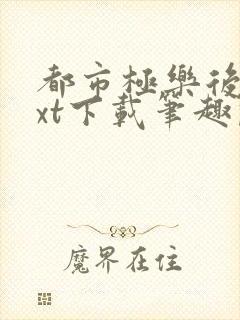 都市極樂後
xt下載筆趣
魔界在住